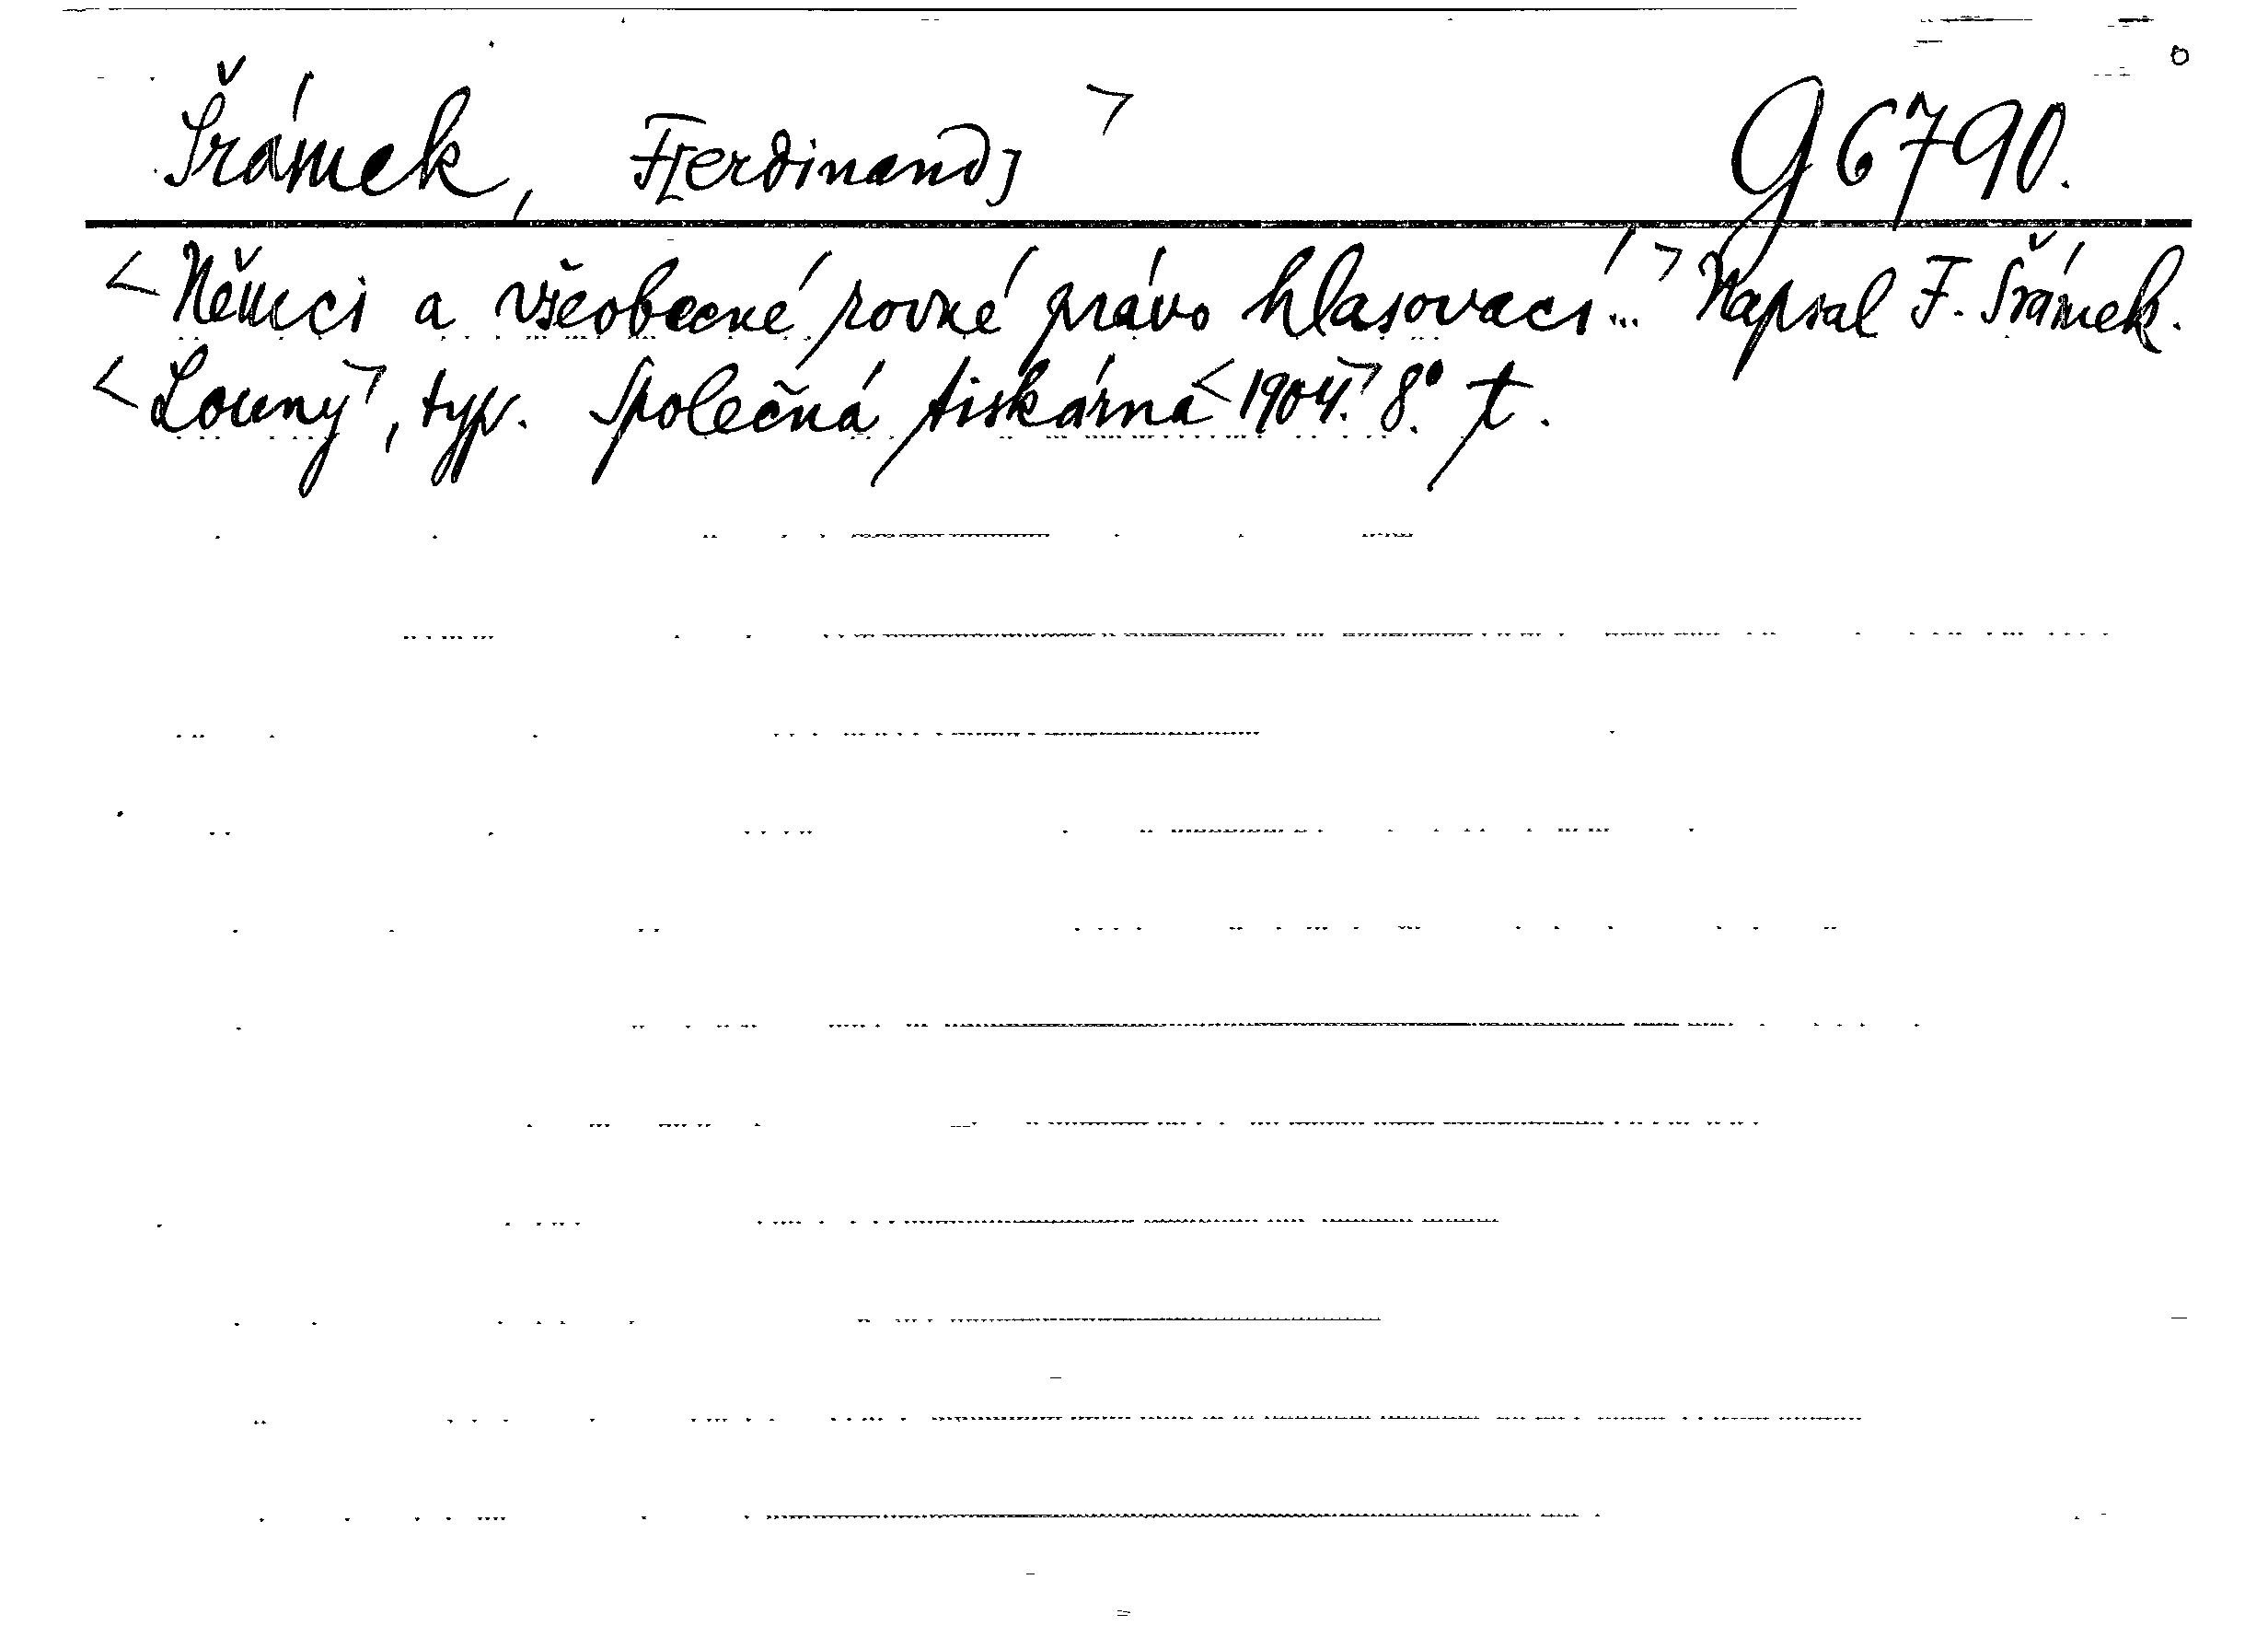 Šrámek, F[erdinand] ˃ G 6790.
<Němci a všeobecné rovné právo hlasovací...> Napsal F. Šrámek.
<Louny>, typ. Společná tiskárna <1904.> 8°. t.